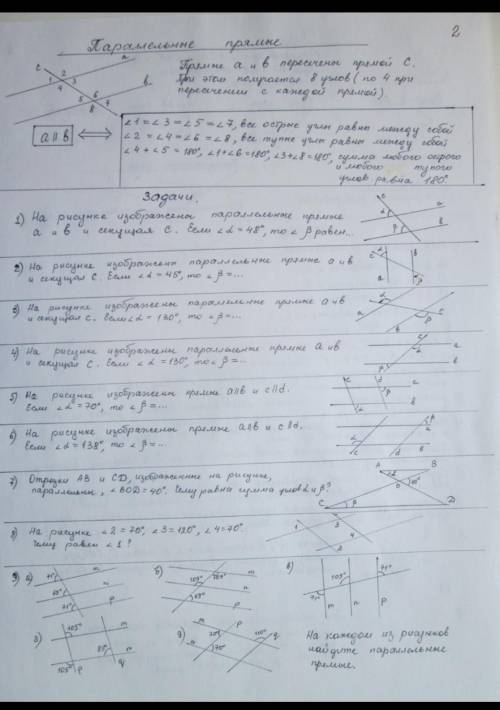 2
Параллельные прямые
Прямые a и b пересечены прямой C.
При этом получается 8 углов (по 4 при
пересечении с каждой прямой).
c a b
1 2 3 4
5 6 7 8
a∥b
∠1=∠3=∠5=∠7, все острые углы равны между собой
∠2=∠4=∠6=∠8, все тупые углы равны между собой
∠4+∠5=180°, ∠1+∠6=180°, ∠3+∠8=180°, сумма любого острого
и любого тупого
углов равна 180°
Задачи.
1) На рисунке изображены параллельные прямые
a и b и секущая C. Если ∠α=48°, то ∠β равен...
2) На рисунке изображены параллельные прямые a и b
и секущая C. Если ∠α=45°, то ∠β=...
3) На рисунке изображены параллельные прямые a и b
и секущая C. Если ∠α=130°, то ∠β=...
4) На рисунке изображены параллельные прямые a и b
и секущая C. Если ∠α=130°, то ∠β=...
5) На рисунке изображены прямые a∥b и c∥d.
Если ∠α=70°, то ∠β=...
6) На рисунке изображены прямые a∥b и c∥d.
Если ∠α=138°, то ∠β=...
7) Отрезки AB и CD, изображенные на рисунке,
параллельны, ∠BOD=40°. Чему равна сумма углов α и β?
A B O C D
8) На рисунке ∠2=70°, ∠3=120°, ∠4=70°.
Чему равен ∠1?
1 3 4
9) а) 71° m n 71° p
б) 109° m n 69° p
в) 109° 71° 71° m n p
г) 105° m n 105° p q
д) m n 70° 110° p q
На каждом из рисунков
найдите параллельные
прямые.